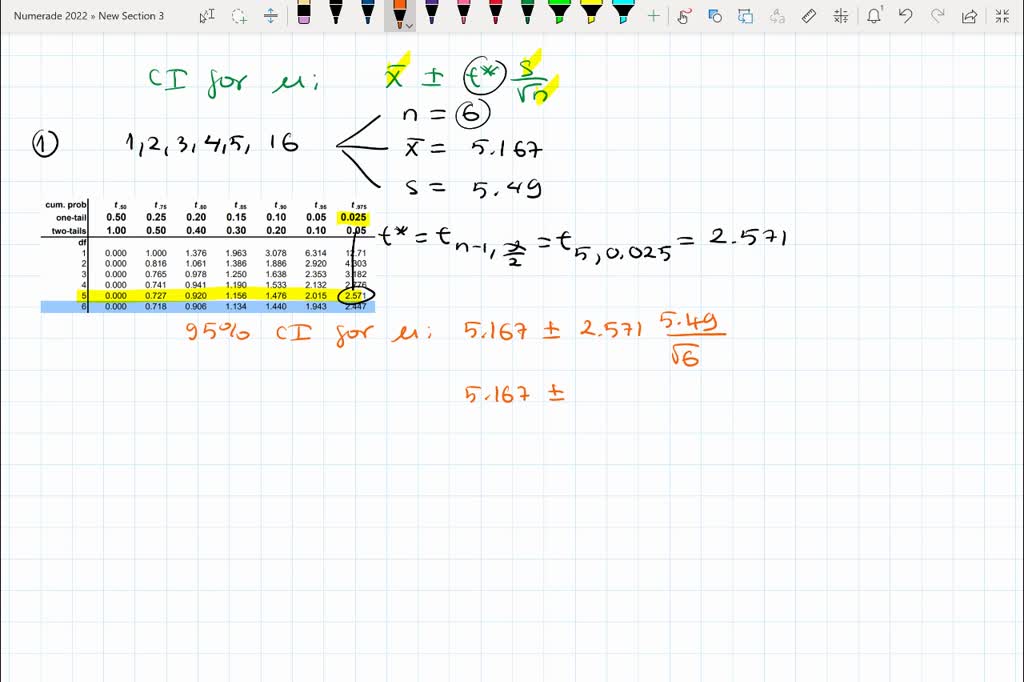 Numerade 2022 » New Section 3
CI for μ: x̄ ± t* s/√n
n = 6
① 1,2,3,4,5, 16
x̄ = 5.167
s = 5.49
cum. prob t.50 t.75 t.80 t.85 t.90 t.95 t.975
one-tail 0.50 0.25 0.20 0.15 0.10 0.05 0.025
two-tails 1.00 0.50 0.40 0.30 0.20 0.10 0.05
t* = t n-1, α/2 = t 5, 0.025 = 2.571
df
1 0.000 1.000 1.376 1.963 3.078 6.314 12.71
2 0.000 0.816 1.061 1.386 1.886 2.920 4.303
3 0.000 0.765 0.978 1.250 1.638 2.353 3.182
4 0.000 0.741 0.941 1.190 1.533 2.132 2.776
5 0.000 0.727 0.920 1.156 1.476 2.015 2.571
6 0.000 0.718 0.906 1.134 1.440 1.943 2.447
95% CI for μ: 5.167 ± 2.571 5.49/√6
5.167 ±